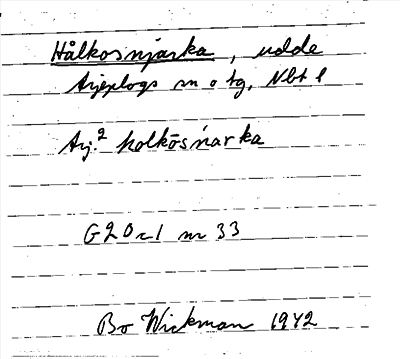 Hålkosnjarka, udde
Arjeplogs sn o tg, Nbt l
Arj.² holkōsńarka
G20 c1 nr 33
Bo Wickman 1942